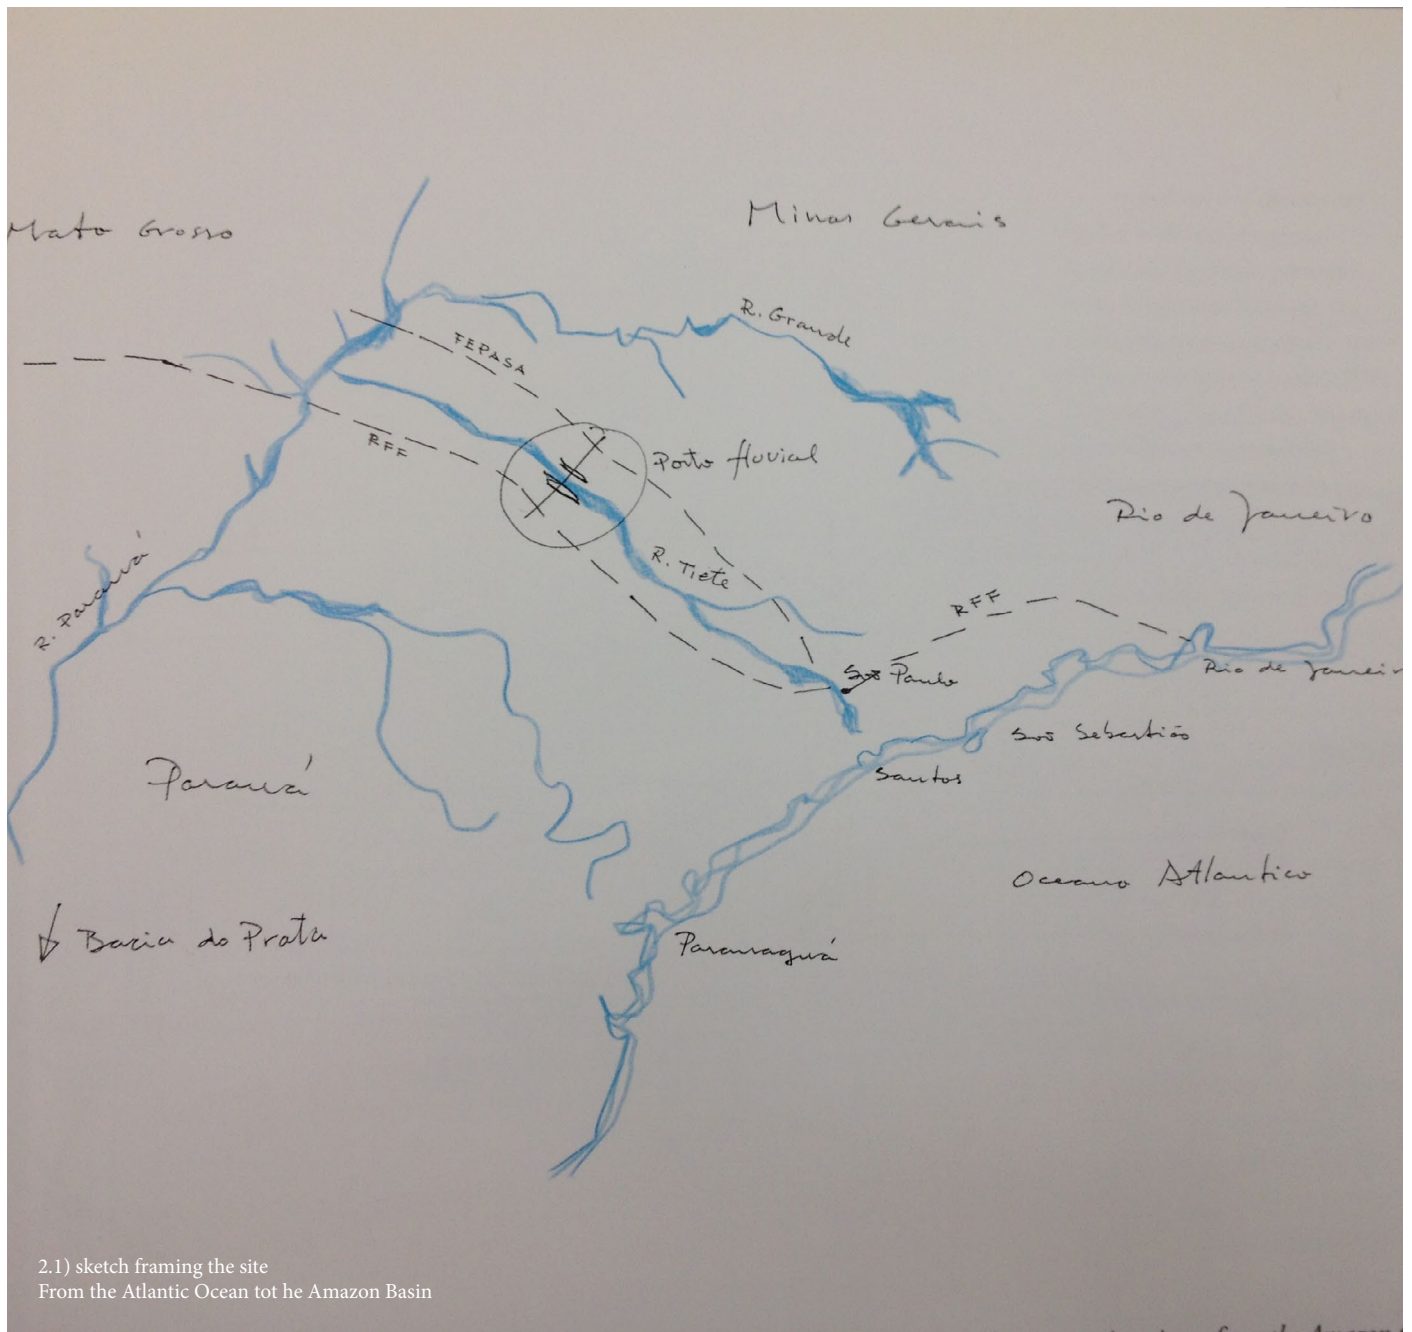 Mato Grosso
Minas Gerais
R. Grande
FEPASA
RFF
Porto fluvial
Rio de Janeiro
R. Tiete
R. Paraná
RFF
São Paulo
Rio de Janeir
São Sebastião
Santos
Paraná
Oceano Atlantico
Bacia do Prata
Paranaguá
2.1) sketch framing the site
From the Atlantic Ocean tot he Amazon Basin